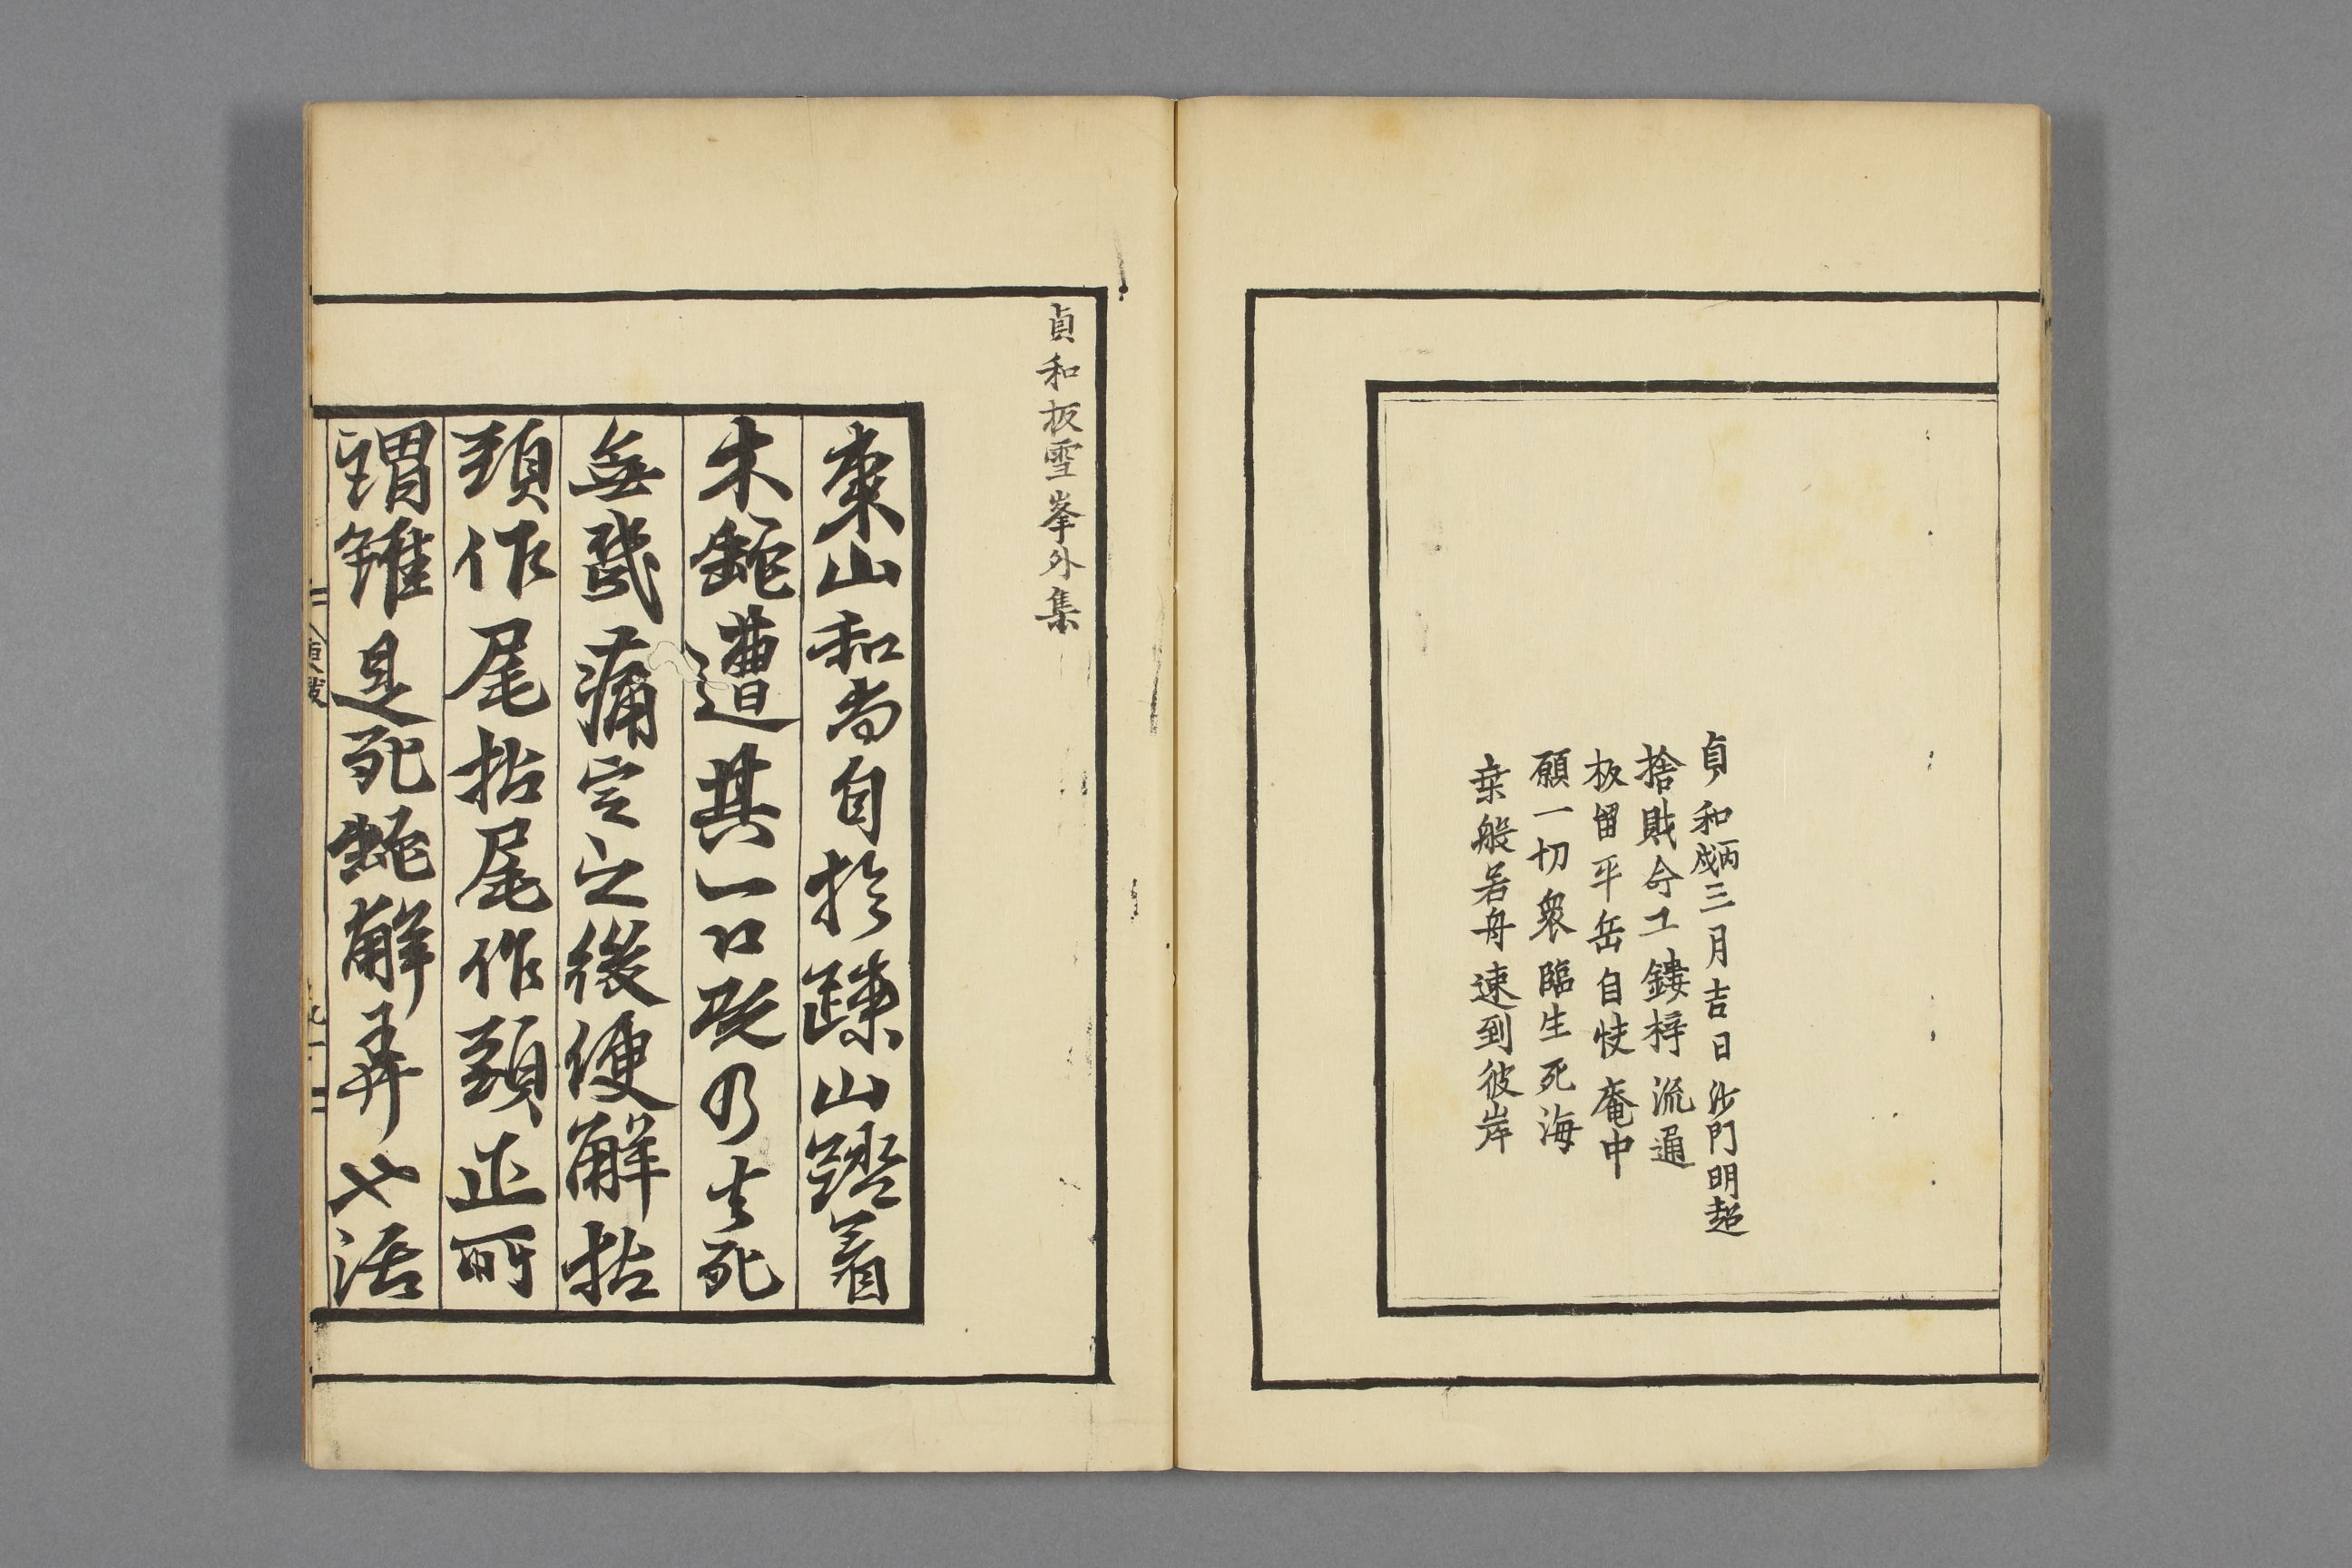 貞和丙戌三月吉日沙門明超
捨財命工鏤梓流通
板留平岳自快庵中
願一切衆臨生死海
乗般若舟速到彼岸
貞和板雪峯外集
東山和尚自於踈山踏着
木虵遭其一口既乃去死
無幾痛定之後便解拈
頭作尾拈尾作頭正所
謂雖是死虵解弄也活